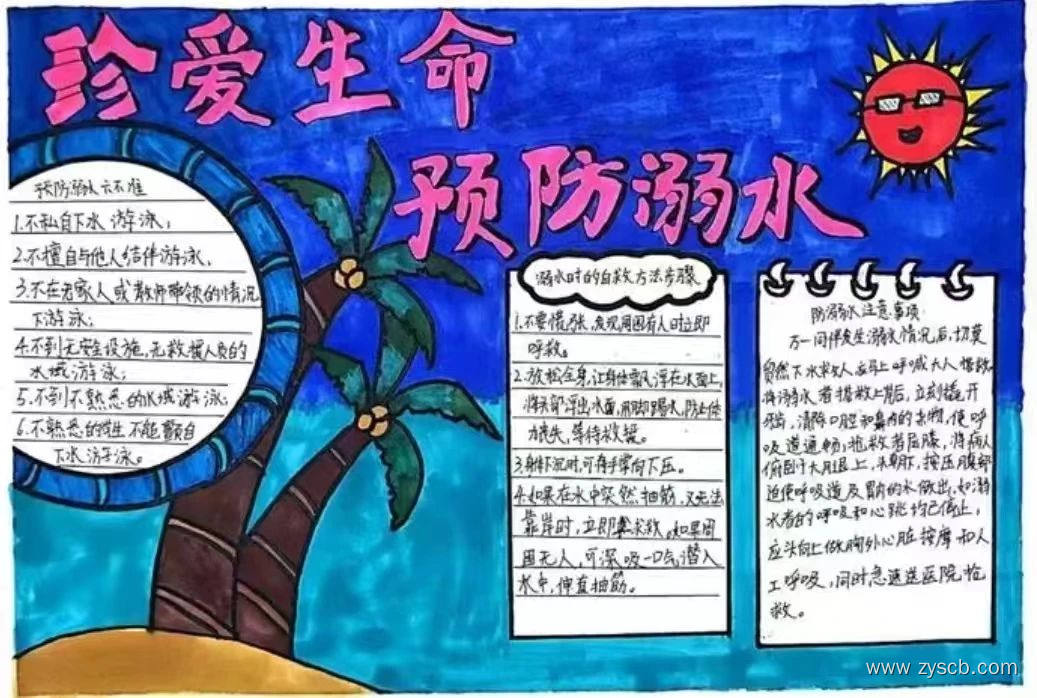 珍爱生命
预防溺水
预防溺水六不准
1.不私自下水游泳；
2.不擅自与他人结伴游泳，
3.不在无家人或教师带领的情况
下游泳；
4.不到无安全设施，无救援人员的
水域游泳；
5.不到不熟悉的水域游泳；
6.不熟悉的学生不能擅自
下水游泳。
溺水时的自救方法步骤
1.不要慌张，发现周围有人时立即
呼救。
2.放松全身，让身体飘浮在水面上，
将头部浮出水面，用脚踢水，防止体
力丧失，等待救援。
3.身体下沉时，可将手掌向下压。
4.如果在水中突然抽筋，又无法
靠岸时，立即求救。如果周
围无人，可深吸一口气潜入
水中，伸直抽筋。
防溺水注意事项
万一同伴发生溺水情况后，切莫
贸然下水求人应马上呼喊大人
将溺水者捞救上岸后，立刻撬开
牙齿，清除口腔和鼻内的杂物，使呼
吸道通畅；抢救者屈膝，将病人
俯卧于大腿上，头朝下，按压腹部
迫使呼吸道及胃的水做出，如溺
水者的呼吸和心跳均已停止，
应头向上做胸外心脏按摩和人
工呼吸，同时急速送医院抢
救。
www.zyscb.com